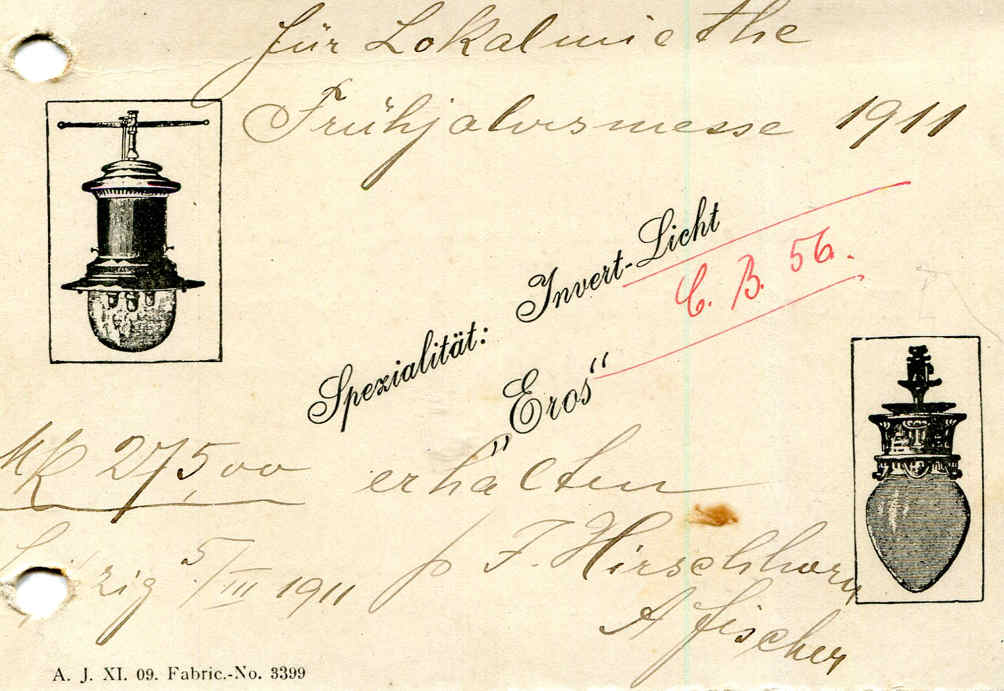 für Lokalmiethe
Frühjahrsmesse 1911
Spezialität: Invert-Licht
„Eros“
C. B. 56.
Mk 275,00 erhalten
Leipzig 5/III 1911 p F. Hirschhorn
A Fischer
A. J. XI. 09. Fabric.-No. 3399